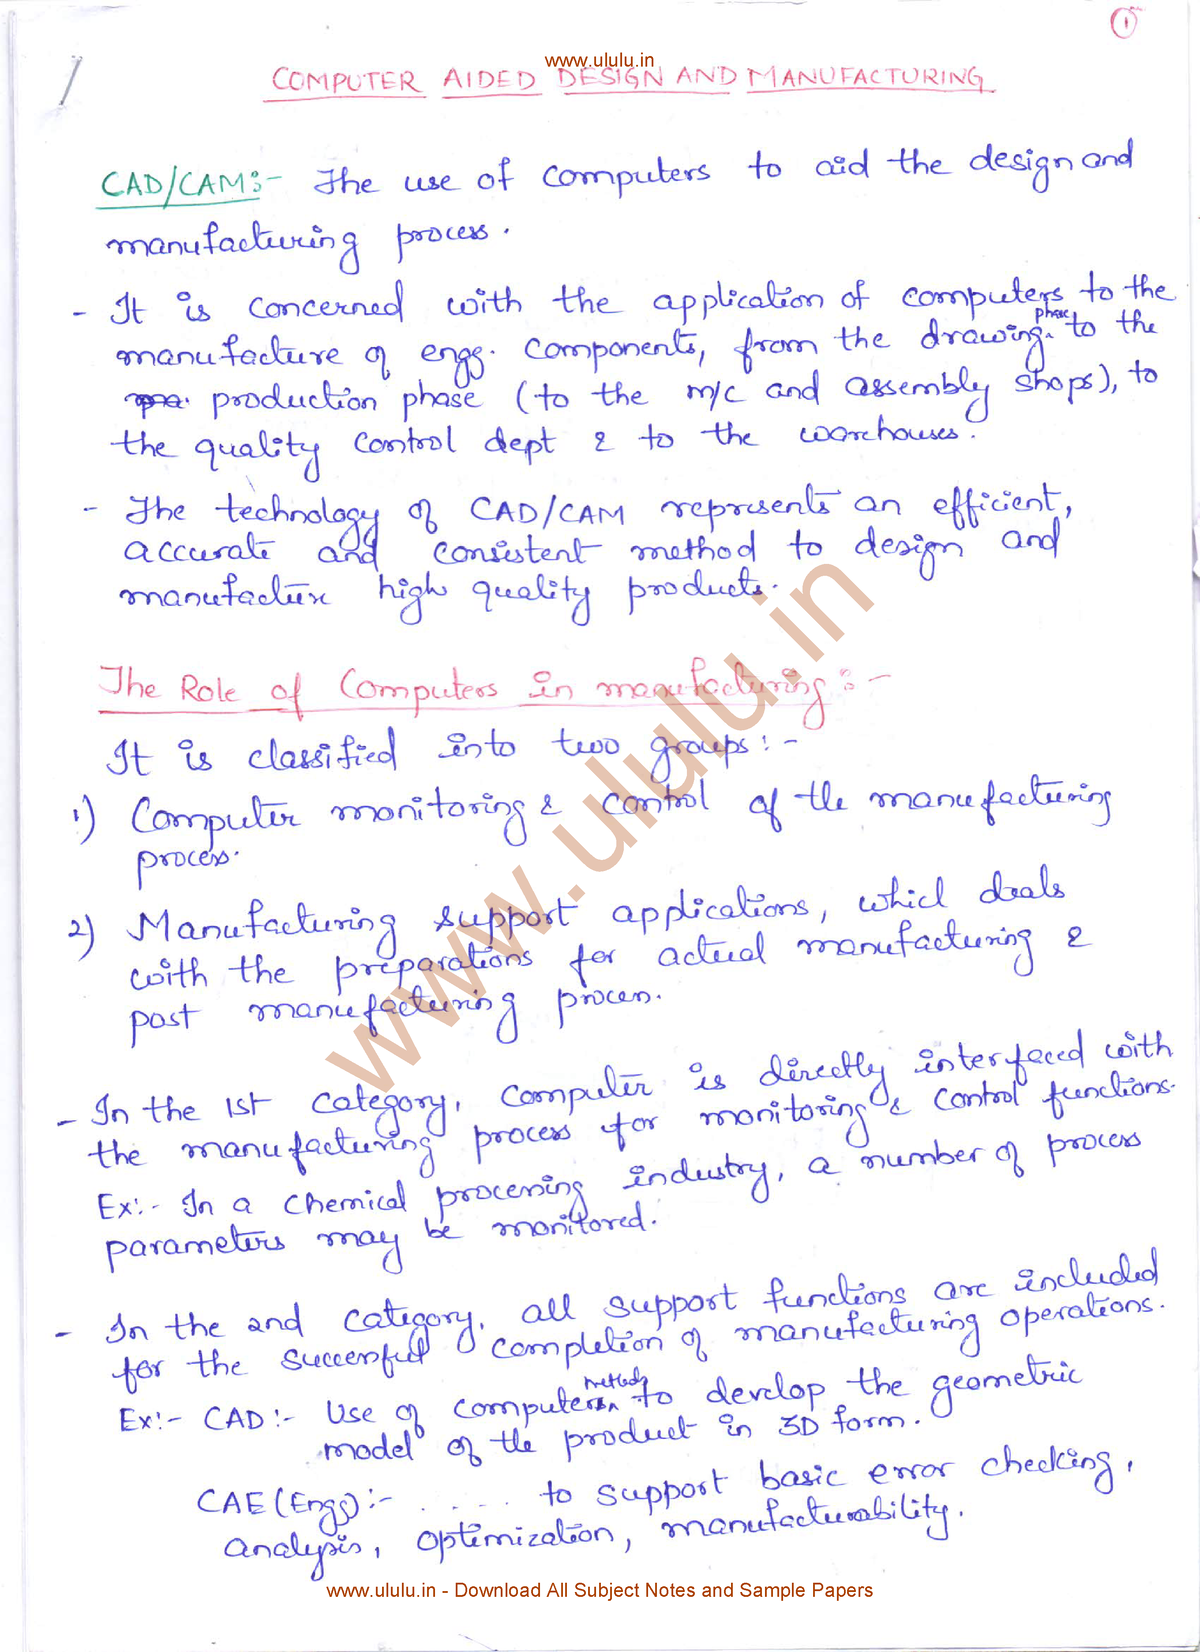 1
www.ululu.in
COMPUTER AIDED DESIGN AND MANUFACTURING
CAD/CAM:- The use of computers to aid the design and
manufacturing process.
- It is concerned with the application of computers to the
manufacture of engg. components, from the drawing phase to the
production phase (to the m/c and assembly shops), to
the quality control dept & to the warehouses.
- The technology of CAD/CAM represents an efficient,
accurate and consistent method to design and
manufacture high quality products.
The Role of Computers in manufacturing:-
It is classified into two groups:-
1) Computer monitoring & control of the manufacturing
process.
2) Manufacturing support applications, which deals
with the preparations for actual manufacturing &
post manufacturing process.
- In the 1st category, computer is directly interfaced with
the manufacturing process for monitoring & control functions.
Ex:- In a chemical processing industry, a number of process
parameters may be monitored.
- In the 2nd category, all support functions are included
for the successful completion of manufacturing operations.
Ex:- CAD:- Use of computer methods to develop the geometric
model of the product in 3D form.
CAE (Engg):- ........ to support basic error checking,
analysis, optimization, manufacturability.
www.ululu.in
www.ululu.in - Download All Subject Notes and Sample Papers